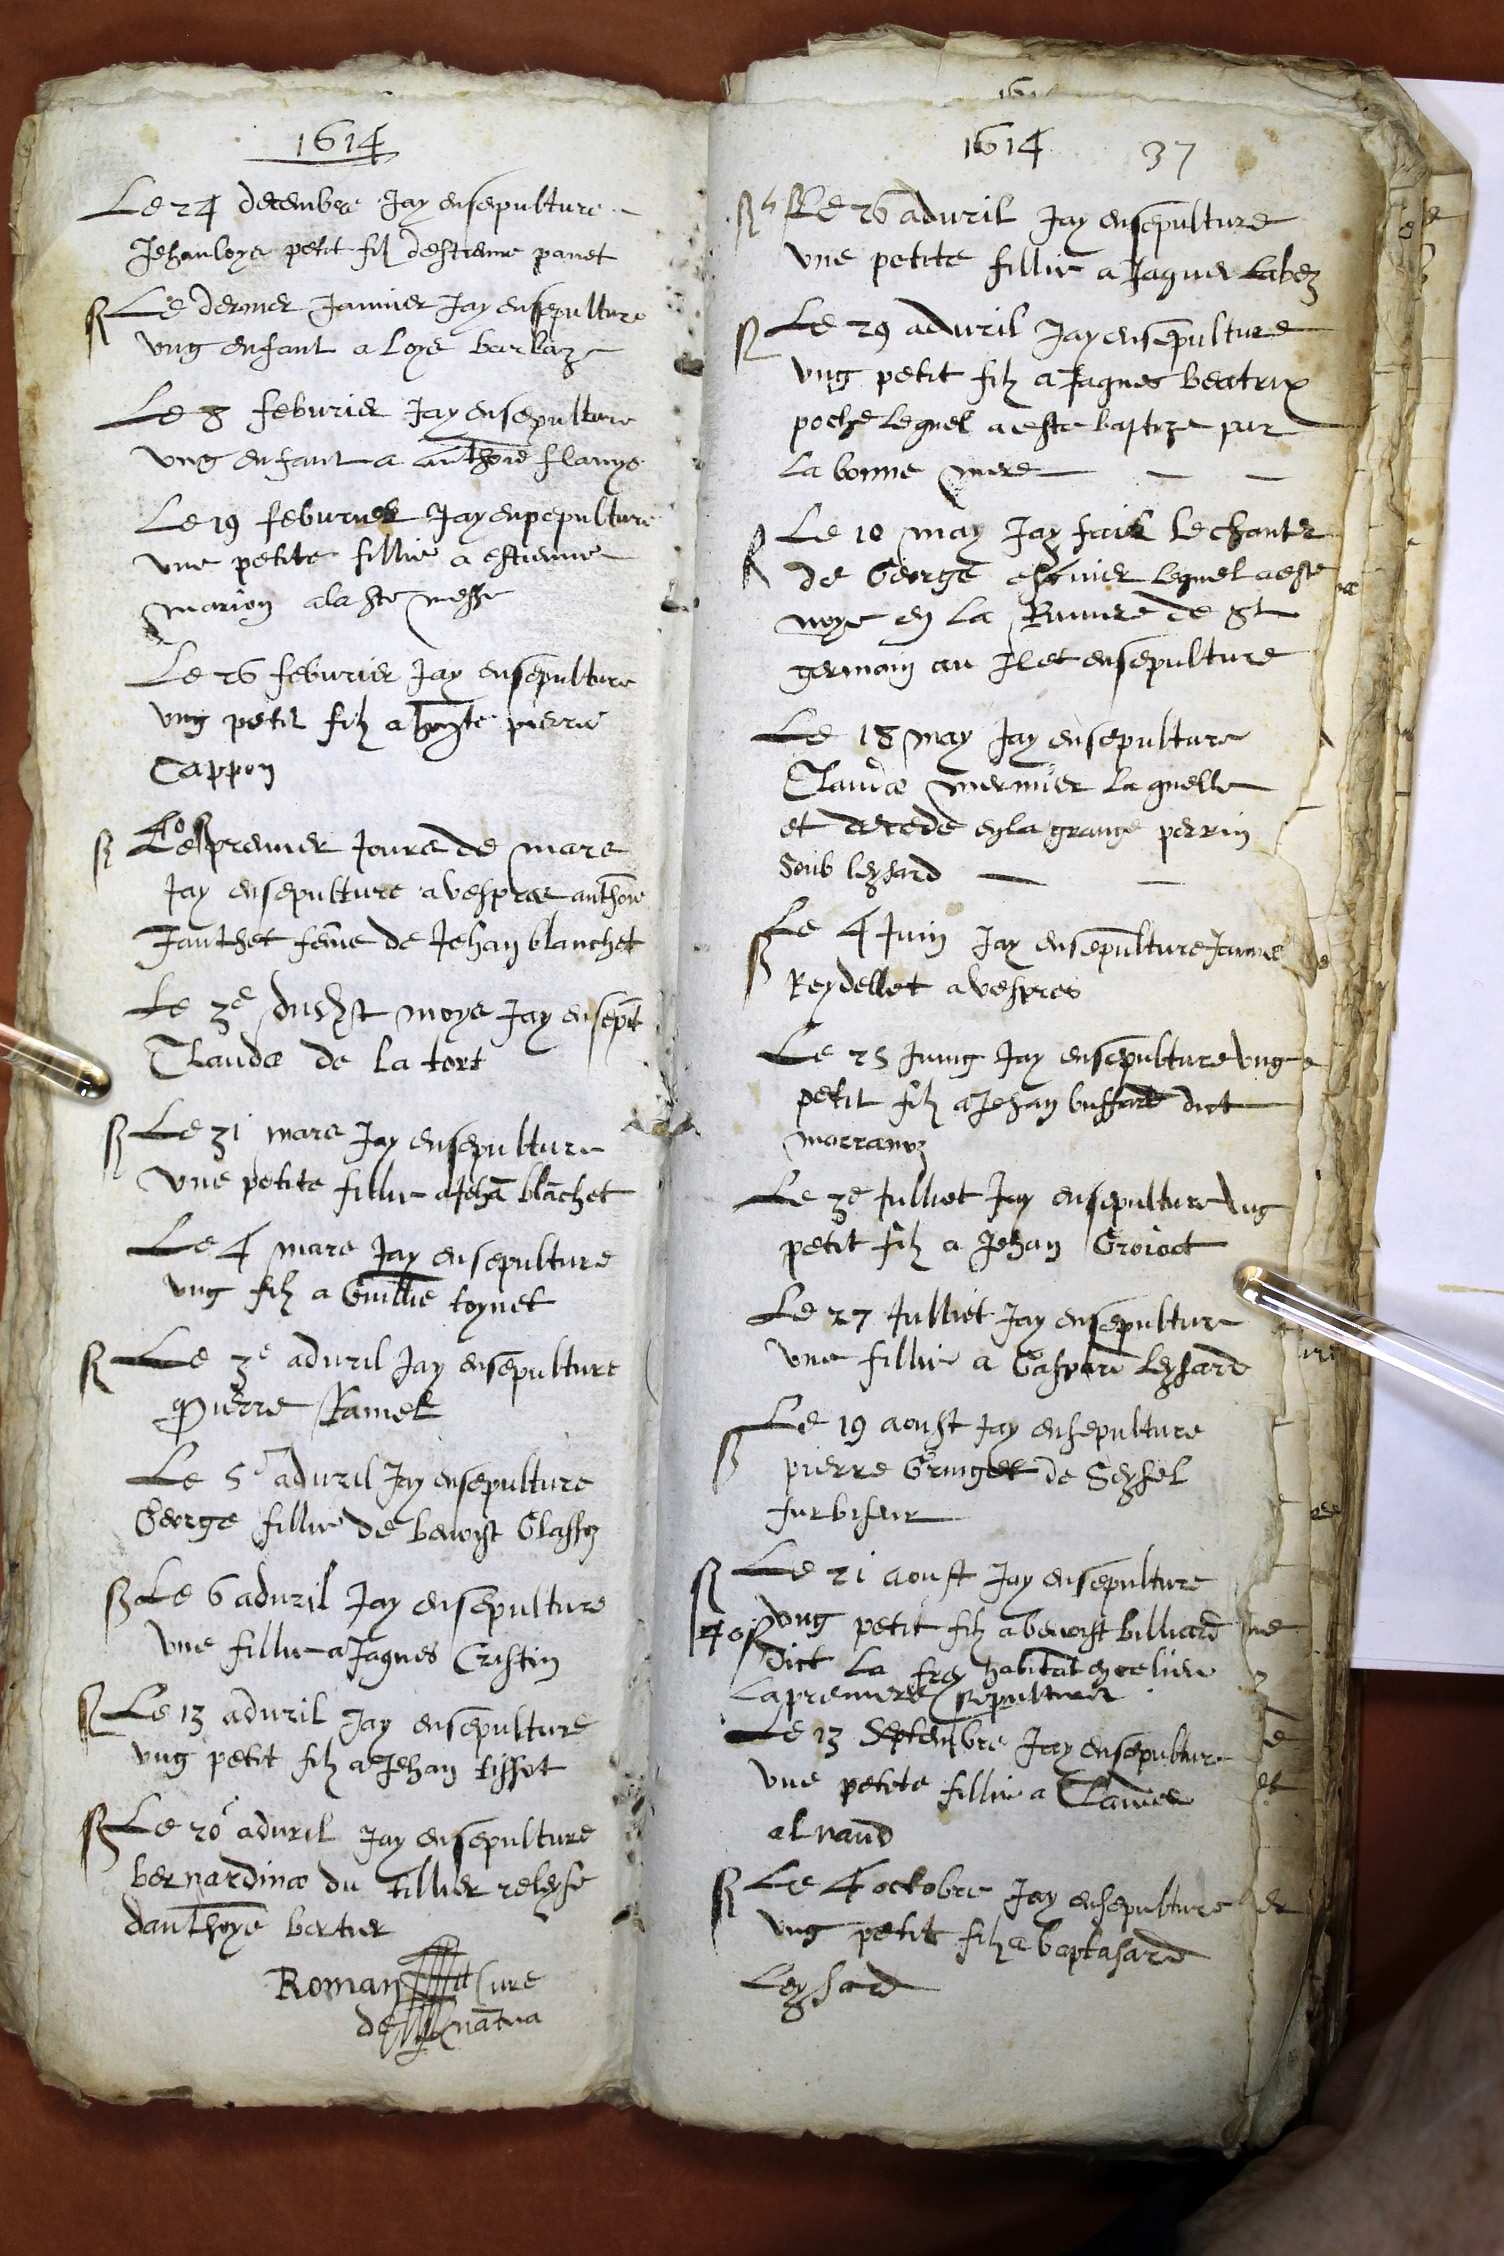 1614
Le 24 decembre Jay ensepulture
Jehan loys petit filz destienne panet
Le dernier Janvier Jay ensepulture
ung enfant a loys barbaz
Le 8 feburier Jay ensepulture
ung enfant a anthoie
Le 19 feburier Jay ensepulture
une petite fillie a estienne
marion a la ste messe
Le 26 feburier Jay ensepulture
ung petit filz a pierre
Cappon
Le premier Jours de mars
Jay ensepulture a vespres anthoie
Janthet feme de Jehan blanchet
Le 3e dudist moys Jay ensept
Clauda de la tort
Le 31 mars Jay ensepulture
une petite fillie a Jehã blãchet
Le 4 mars Jay ensepulture
ung filz a Guillie toynet
Le 3e aduril Jay ensepulture
pierre Ramel
Le 5e aduril Jay ensepulture
George fillie de benoist Classoz
Le 6 aduril Jay ensepulture
une fillie a Jaques Cristin
Le 13 aduril Jay ensepulture
ung petit filz a Jehan tissot
Le 20 aduril Jay ensepulture
bernardina du tillier
danthoye bertier
Roman Cure
de nãtua
1614 37
Le 26 aduril Jay ensepulture
une petite fillie a Jaques Labez
Le 29 aduril Jay ensepulture
ung petit filz a Jaques beatrix
poche lequel a este baptize par
la bonne mere
Le 10 may Jay faict le chanter
de George lequel a este
noye en la Riviere de St
germain au Jlet ensepulture
Le 18 may Jay ensepulture
Clauda mermier laquelle
et decede en la grange perrin
soub leyssard
Le 4 Juin Jay ensepulture
Reydellet a vespres
Le 25 Juing Jay ensepulture ung
petit filz a Jehan buffard dict
morranoz
Le 3e Julliet Jay ensepulture ung
petit filz a Jehan Groiset
Le 27 Julliet Jay ensepulture
une fillie a Gaspard leyssard
Le 19 aoust Jay ensepulture
pierre Gringet de Seyssel
furbiseur
Le 21 aoust Jay ensepulture
ung petit filz a benoist billiard
dict la frey habitãt en ce lieu
la premiere sepulture
Le 13 Septembre Jay ensepulture
une petite fillie a Claude
alnaud
Le 4 octobre Jay ensepulture
ung petit filz a baptasard
Leyssard